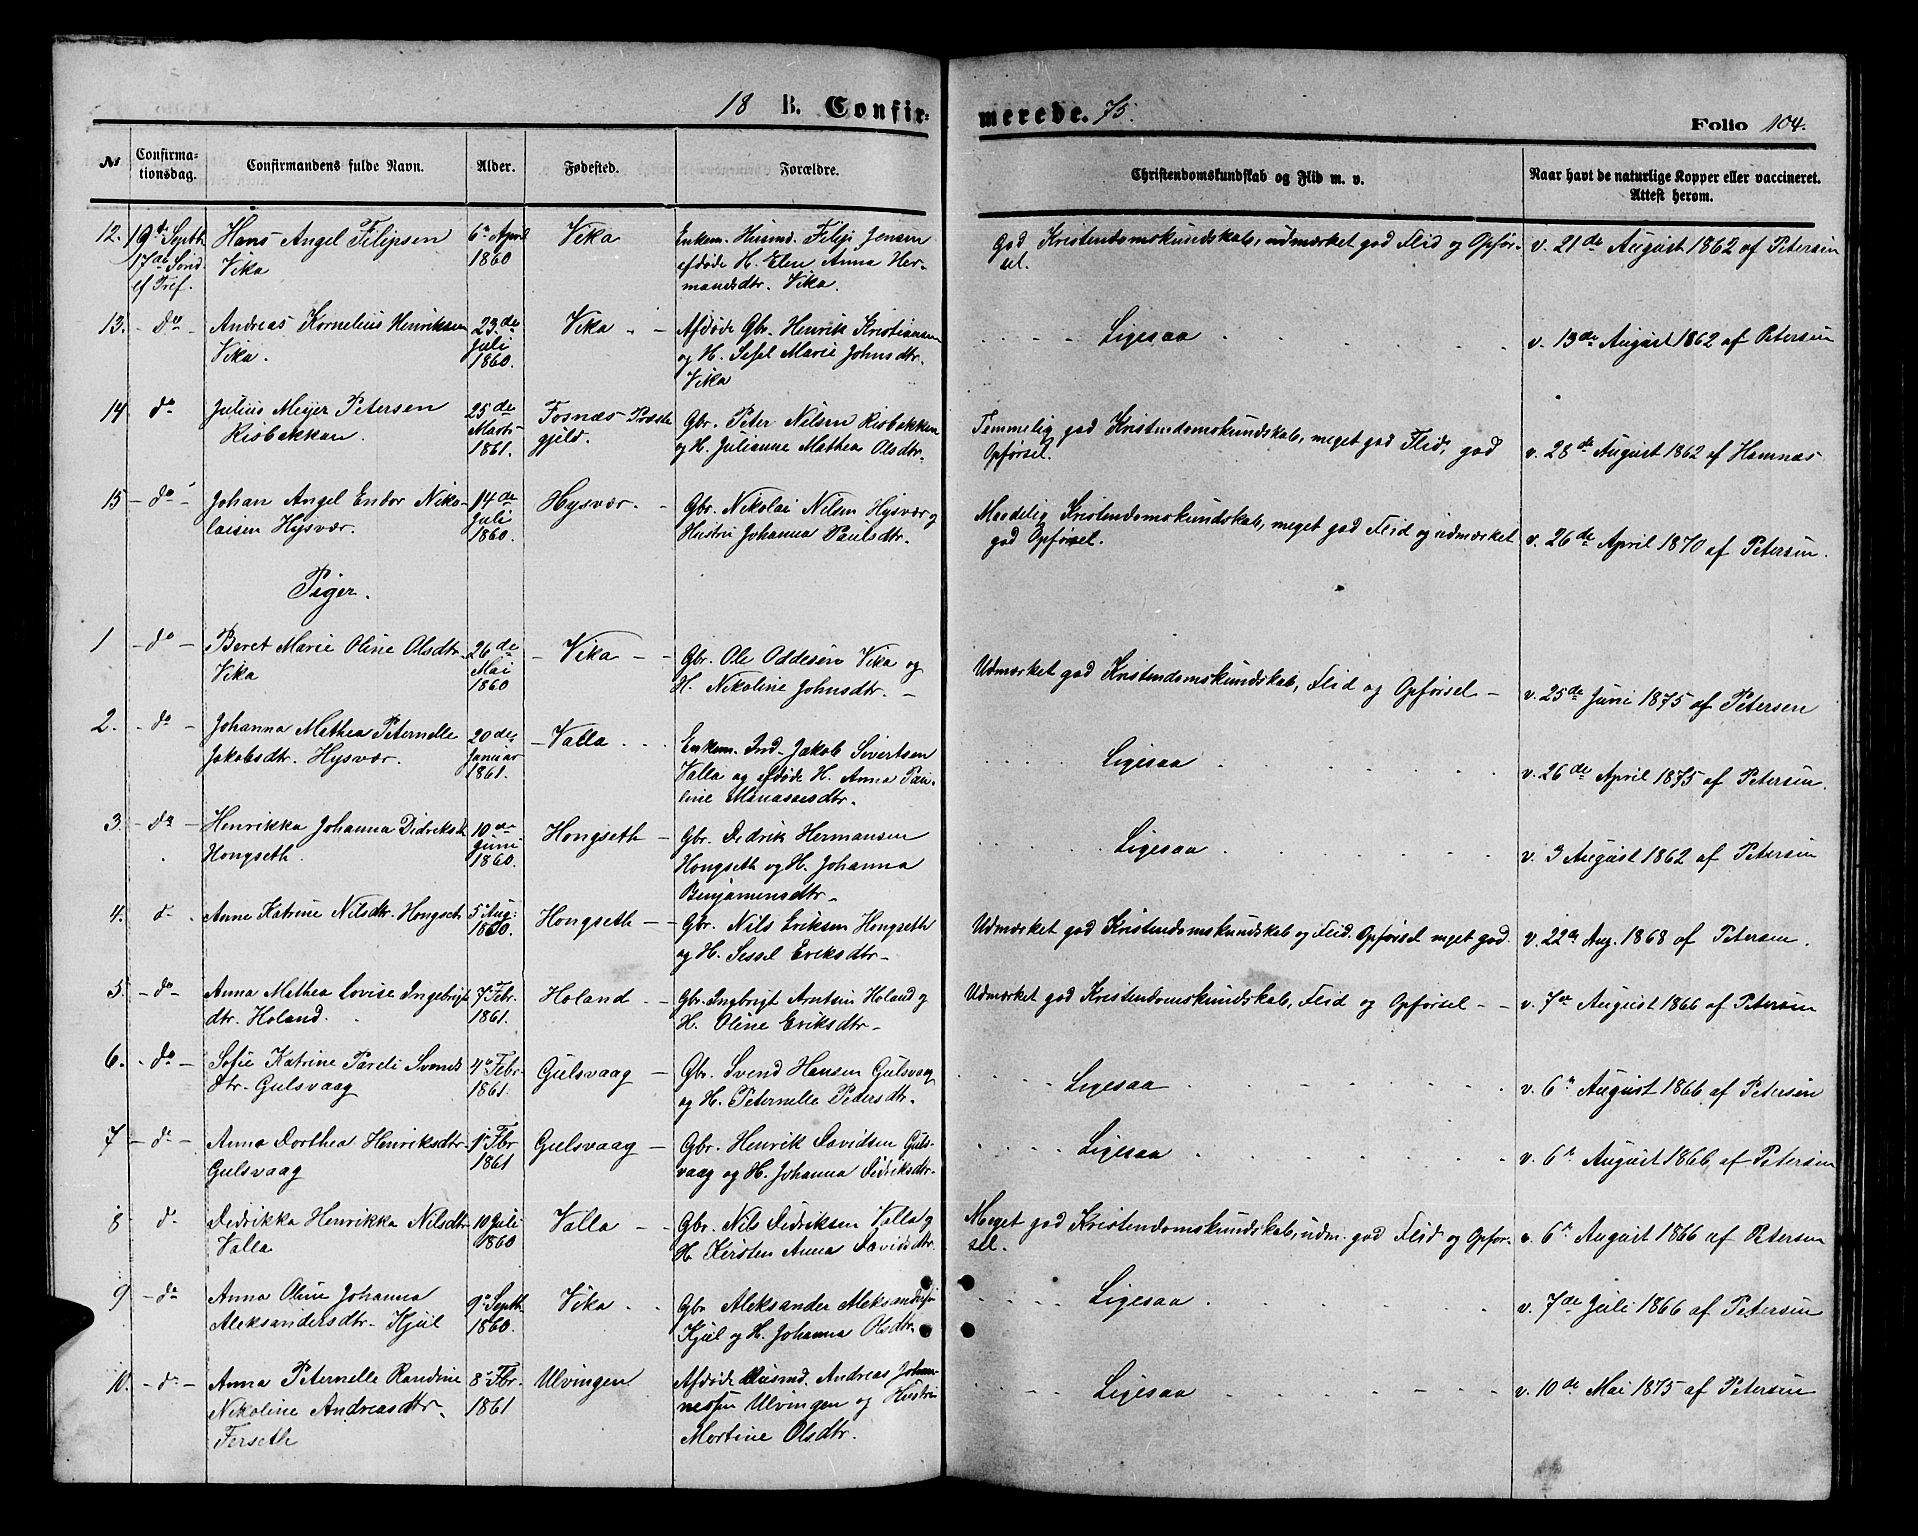 18 B. Confirmerede. 75.
Folio 104.
№
Confirma-
tionsdag.
Confirmandens fulde Navn.
Alder.
Fødested.
Forældre.
Christendomskundskab og Flid m. v.
Naar havt de naturlige Kopper eller vaccineret.
Attest herom.
12. 19de Septb. Hans Angel Filipsen 6te April Vika Enkem. Husmd. Filip Jensen God Kristendomskundskab, udmærket god Flid og Opfør- v. 21de August 1862 af Petersen
17de Sønd Vika 1860 afdøde H. Elen Anna Her- sel.
ef Tref. mansdtr. Vika.
13. - do - Andreas Kornelius Henriksen 23de Vika - - Afdøde Gbr. Henrik Kristiansen Ligesaa v. 13de August 1862 af Petersen
Vika. Juli og H. Sefel Marie Johnsdtr.
1860. Vika
14 do Julius Meyer Petersen 25de Fosnæs Præste Gbr. Peter Nilsen Risbakken Temmelig god Kristendomskundskab, meget god Flid, god v. 28de August 1862 af Hamnæs
Risbakkan. Marts gjeld. og H. Julianne Mathea Olsdtr. Opførsel.
1861.
15 - do - Johan Angel Endor Niko- 14de Hysvær. - Gbr. Nikolai Nilsen Hysvær og Maadelig Kristendomskundskab, meget god Flid og udmærket v. 26de April 1870 af Petersen.
laisen Hysvær. Juli Hustru Johanna Paulsdtr. god Opførsel.
1860.
Piger.
1 - do - Beret Marie Oline Olsdtr. 26de - Vika - - Gbr. Ole Oddesen Vika og Udmærket god Kristendomskundskab, Flid og Opførsel - v. 25de Juni 1875 af Petersen
Vika Mai H. Nikoline Johnsdtr. -
1860
2. - do - Johanna Mathea Peternelle 20de - Valla Enkem. Ind. Jakob Sivertsen Ligesaa v. 26de April 1875 af Petersen.
Jakobsdtr. Hysvær. Januar Valla og afdøde H. Anna Pau-
1861. line Manassesdtr.
3. - do - Henrikka Johanna Didriksd. 10de Hongseth - Gbr. Dedrik Hermansen Ligesaa v. 3 August 1862 af Petersen
Hongseth. Juni Hongseth og H. Johanna
1860. Benjamensdtr.
4. - do - Anne Katrine Nilsdtr. Hongset 5 Aug: Hongseth - - Gbr. Nils Eriksen Hongseth Udmærket god Kristendomskundskab og Flid. Opførsel meget god. v. 22de Aug. 1868 af Petersen.
1860. og H. Sessel Eriksdtr.
5. - do - Anna Mathea Lovise Ingebrigt 7 Febr. Holand - - Gbr. Ingbrigt Arntsen Holand og Udmærket god Kristendomskundskab, Flid og Opførsel - - v. 7de August 1866 af Petersen
dtr. Holand. 1861. H. Oline Eriksdtr.
6. - do - Sofie Katrine Pareli Svends 4de Febr. Gulsvaag - Gbr. Svend Hansen Gulsvaag Ligesaa v. 6te August 1866 af Petersen
dtr. Gulsvaag 1861. og H. Peternelle Pedersdtr.
7 - do - Anna Dorthea Henriksdtr. 1ste Fbr Gulsvaag - Gbr. Henrik Davidsen Guls- Ligesaa v. 6te August 1866 af Petersen
Gulsvaag 1861 vaag og H. Johanna Didriksdtr.
8 - do - Dedrikka Henrikka Nilsdtr 10 Juli Valla - - Gbr. Nils Dedriksen Valla og Meget god Kristendomskundskab, udm. god Flid og Opfør- v. 6te August 1866 af Petersen
Valla 1860 H. Kirsten Anna Davidsdtr. sel.
9 - do - Anna Oline Johanna 9de Septb. Vika - - Gbr Aleksander Aleksandersen Ligesaa v. 7de Juli 1866 af Petersen
Aleksandersdtr. Kjul 1860. Kjul og H. Johanna Olsdtr.
10. - do - Anna Peternelle Randine 8de Fbr. Ulvingen Afdøde Husmd. Andreas Johan- Ligesaa v. 10de Mai 1875 af Petersen
Nikoline Andreasdtr. 1861 nessen Ulvingen og Hustru
Forseth Martine Olsdtr.